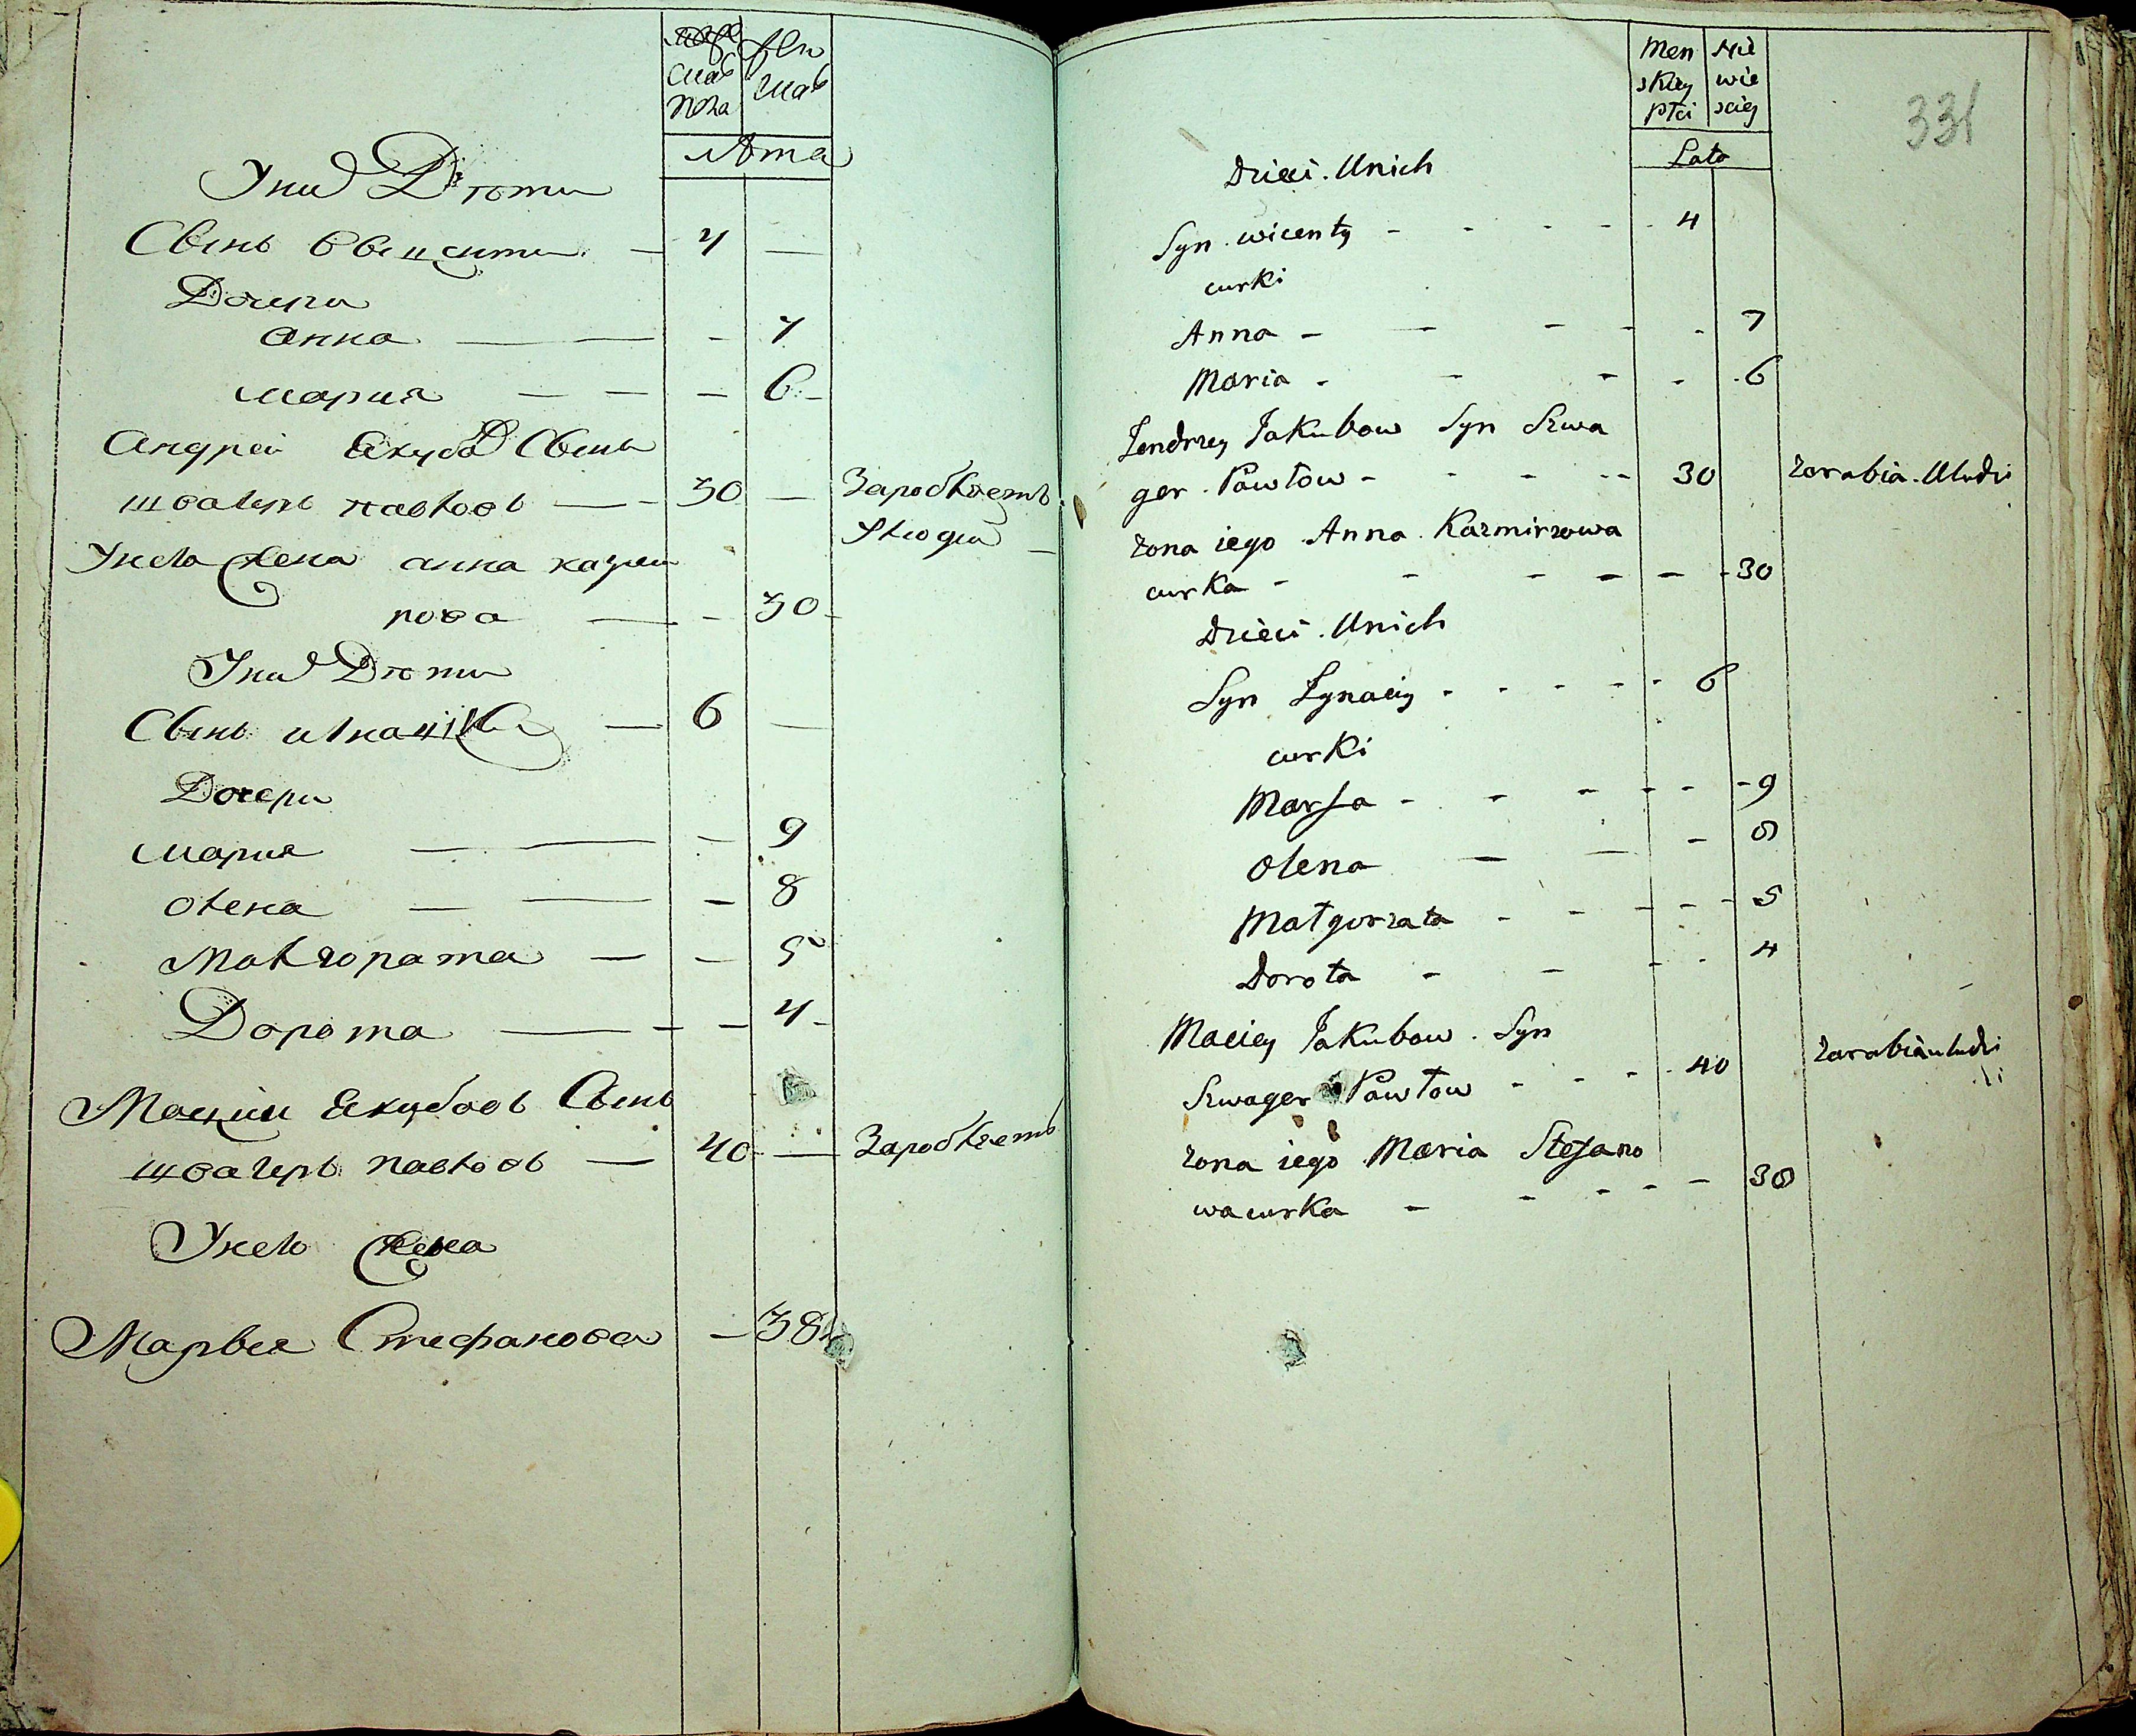 скаго пола
жен скаго
лѣта
У них дѣти
Сынъ Винценти — 4 —
Дочери
Анна — — - 7
Мария — — — 6 -
Андрей Якубов Сынъ
швагеръ Павловъ — 30 — Заробляетъ
У людей —
У него жена Анна Казми
рова — - 30 -
У них дѣти
Сынъ Игнаци — 6 —
Дочери
Мария — — - 9
Олена — — — 8
Малгората — - 5
Дорота — - — 4 -
Маций Якубовъ Сынъ
швагеръ Павловъ — 40 — Заробляетъ
У него жена
Марья Стефанова - 38
331
Men skiey płci
Nie wie sciey
Lata
Dzieci. Unich
Syn. wicenty - - - - - 4
curki
Anna - - - - - 7
Maria - - - - 6
Jendrzey Jakubow Syn Szwa
ger. Pawłow - - - - 30 Zarabia. Uludzi
zona iego Anna Kazmirzowa
curka - - - - - 30
Dzieci. Unich
Syn Ignaciy - - - - - 6
curki
Marja - - - - - - 9
Olena — — - 8
Małgorzata - - - - - 5
Dorota - - - - 4
Maciey Jakubow. Syn
Szwager Pawłow - - - - 40 Zarabia uludzi
zona iego Maria Stefano
wa curka - - - - - 38